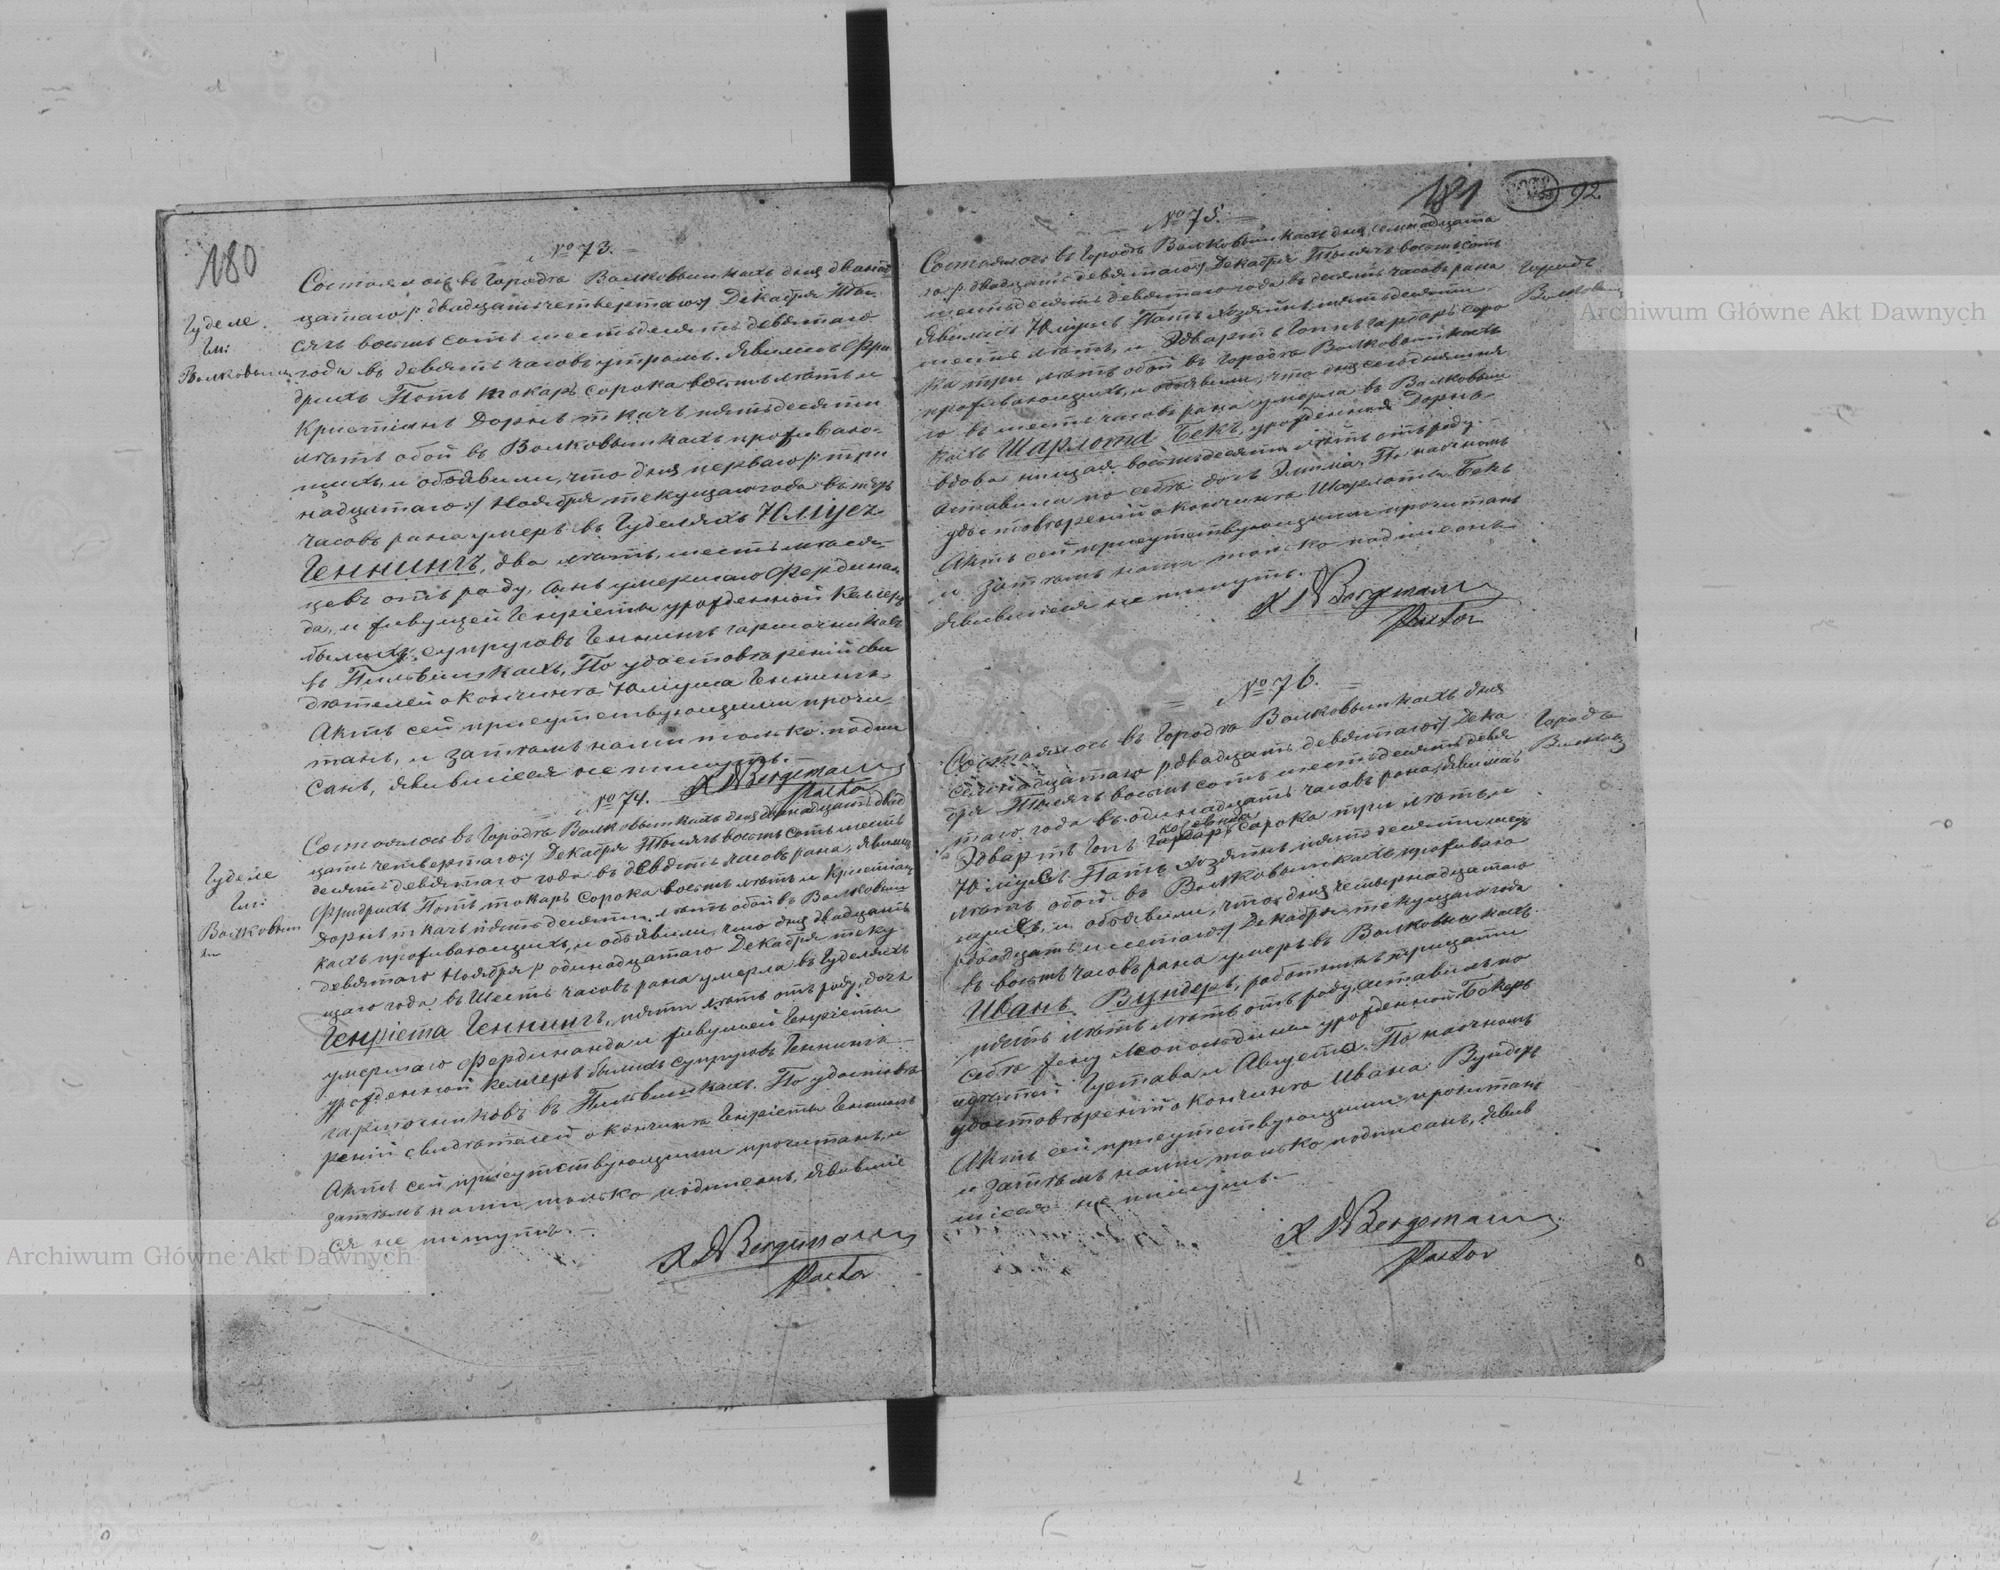 180
№ 73.
Гуделе
Гм:
Волковыш
Состоялось въ Городѣ Волковышкахъ дня двѣнад
цатаго /: двадцать четвертаго :/ Декабря Ты
сячъ восемь сотъ шестьдесятъ девятаго
года въ девять часовъ утромъ. Явились Фри
дрихъ Потъ токарь сорока восемь лѣтъ и
Христіанъ Дорнъ ткачъ пятьдесяти
лѣтъ обой въ Волковышкахъ прожываю-
щихъ, и объявили, что дня перваго /: три
надцатаго :/ Ноября текущаго года въ
часовъ рана умеръ въ Гуделяхъ Юліусъ
Геннингъ, два лѣтъ, шесть мѣся-
цевъ отъ роду, сынъ умершаго Фердинан
да, и живущей Генріеты урожденной Келлеръ
бывшихъ супруговъ Геннингъ гарночниковъ
въ Пильвишкахъ, По удостовѣреній сви
дѣтелей о кончинѣ Юліуша Геннингъ
Актъ сей присутствующими прочи
танъ, и затѣмъ нами только подпи
санъ, явившіеся не пишутъ.
Bergmann
Pastor
№ 74.
Гуделе
Гм:
Волковыш
ки
Состоялось въ Городѣ Волковышкахъ дня двѣнадцать двад
цать четвертаго :/ Декабря Тысячъ восемь сотъ шесть
десятъ девятаго года въ девять часовъ рана, явились
Фридрихъ Потъ токарь сорока восемь лѣтъ и Христіанъ
Дорнъ ткачъ пятьдесяти лѣтъ обой въ Волковыш
кахъ прожывающихъ, и объявили, что дня двадцать
девятаго Ноября /: одинадцатаго Декабря теку
щаго года въ Шесть часовъ рана умерла въ Гуделяхъ
Генріета Геннингъ, пяти лѣтъ отъ роду, дочь
умершаго Фердинанда и живущей Генріеты
урожденной Келлеръ бывшихъ супруговъ Геннингъ
гарночниковъ въ Пильвишкахъ. По удостовѣ
реній свидѣтелей о кончинѣ Генріеты Геннингъ
Актъ сей присутствующими прочитанъ, и
затѣмъ нами только подписанъ, явившіе
ся не пишутъ.
Bergmann
Pastor
181
92
№ 75.
Городъ
Волковыш
Состоялось въ Городѣ Волковышкахъ дня семнадцата
го /: двадцать девятаго :/ Декабря Тысячъ восемь сотъ
шестьдесятъ девятаго года въ десять часовъ рана
Явились Юліусъ Патъ хозяинъ пятьдесяти
шесть лѣтъ, и Эдвартъ Гоппъ гарбаръ соро
ка три лѣтъ обой въ Городѣ Волковышкахъ
прожывающихъ, и объявили, что дня сегодняшня
го въ шесть часовъ рана умерла въ Волковыш
кахъ Шарлота Бекъ, урожденная Дорнъ
вдова нищая восемьдесяти лѣтъ отъ роду.
оставила по себѣ дочь Эмма, По наочномъ
удостовѣреній о кончинѣ Шарлоты Бекъ
Актъ сей присутствующими прочитанъ
и затѣмъ нами только подписанъ
Явившіеся не пишутъ.
Bergmann
Pastor
№ 76.
Городъ
Волковыш
Состоялось въ Городѣ Волковышкахъ дня
семнадцатаго /: двадцать девятаго :/ Дека
бря Тысячъ восемь сотъ шестьдесятъ девя
таго года въ одинадцать часовъ рана, явились
Эдвартъ Гопъ гарбаръ сорока три лѣтъ, и
Юліусъ Патъ хозяинъ пятьдесяти шесть
лѣтъ обой въ Волковышкахъ прожываю
щихъ, и объявили, что дня четырнадцатаго
/: двадцать шестаго :/ Декабря текущаго года
въ восемь часовъ рана умеръ въ Волковышкахъ
Иванъ Вундеръ, работникъ тридцати
пять лѣтъ отъ роду, оставилъ по
себѣ жену Леопольдина урожденной Бекеръ
дѣтей Густава и Августа. По наочномъ
удостовѣреній о кончинѣ Ивана Вундеръ
Актъ сей присутствующими прочитанъ
и затѣмъ нами только подписанъ, явив
шіеся не пишутъ.
Bergmann
Pastor
Archiwum Główne Akt Dawnych
Archiwum Główne Akt Dawnych